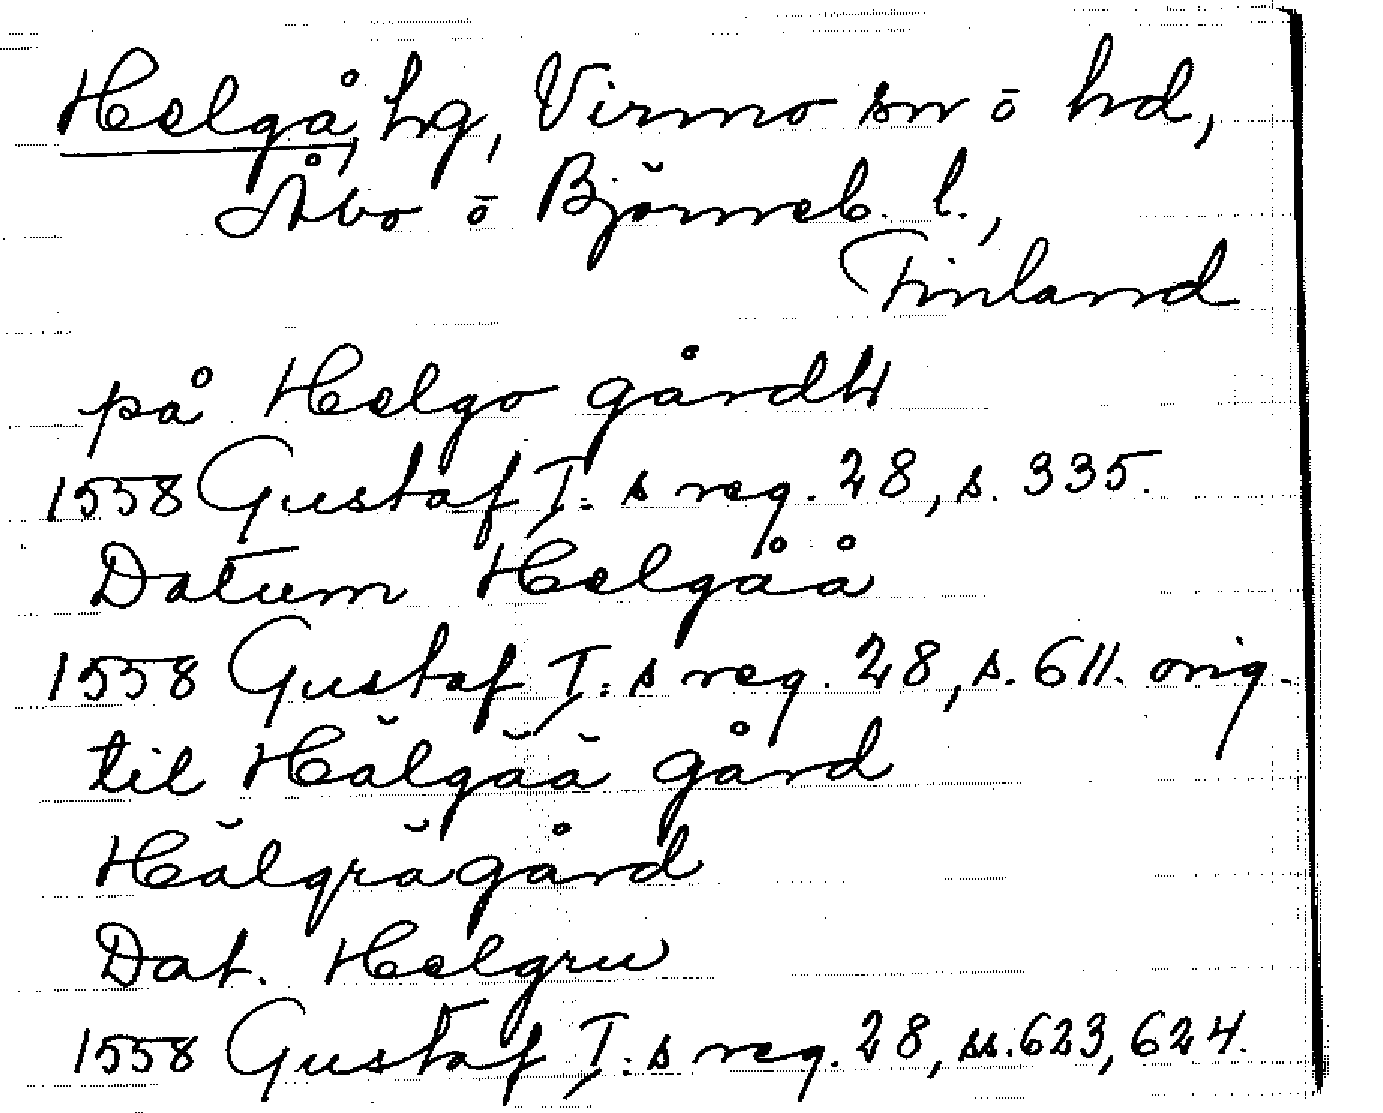 Helgå, hg, Virmo sn ō hd,
Åbo ō Björneb. l.,
Finland
på Helgo gårdh
1558 Gustaf I:s reg. 28, s. 335.
Datum Helgåå
1558 Gustaf I:s reg. 28, s. 611. orig.
til Hälgää gård
Hälgrägård
Dat. Helgru
1558 Gustaf I:s reg. 28, ss. 623, 624.